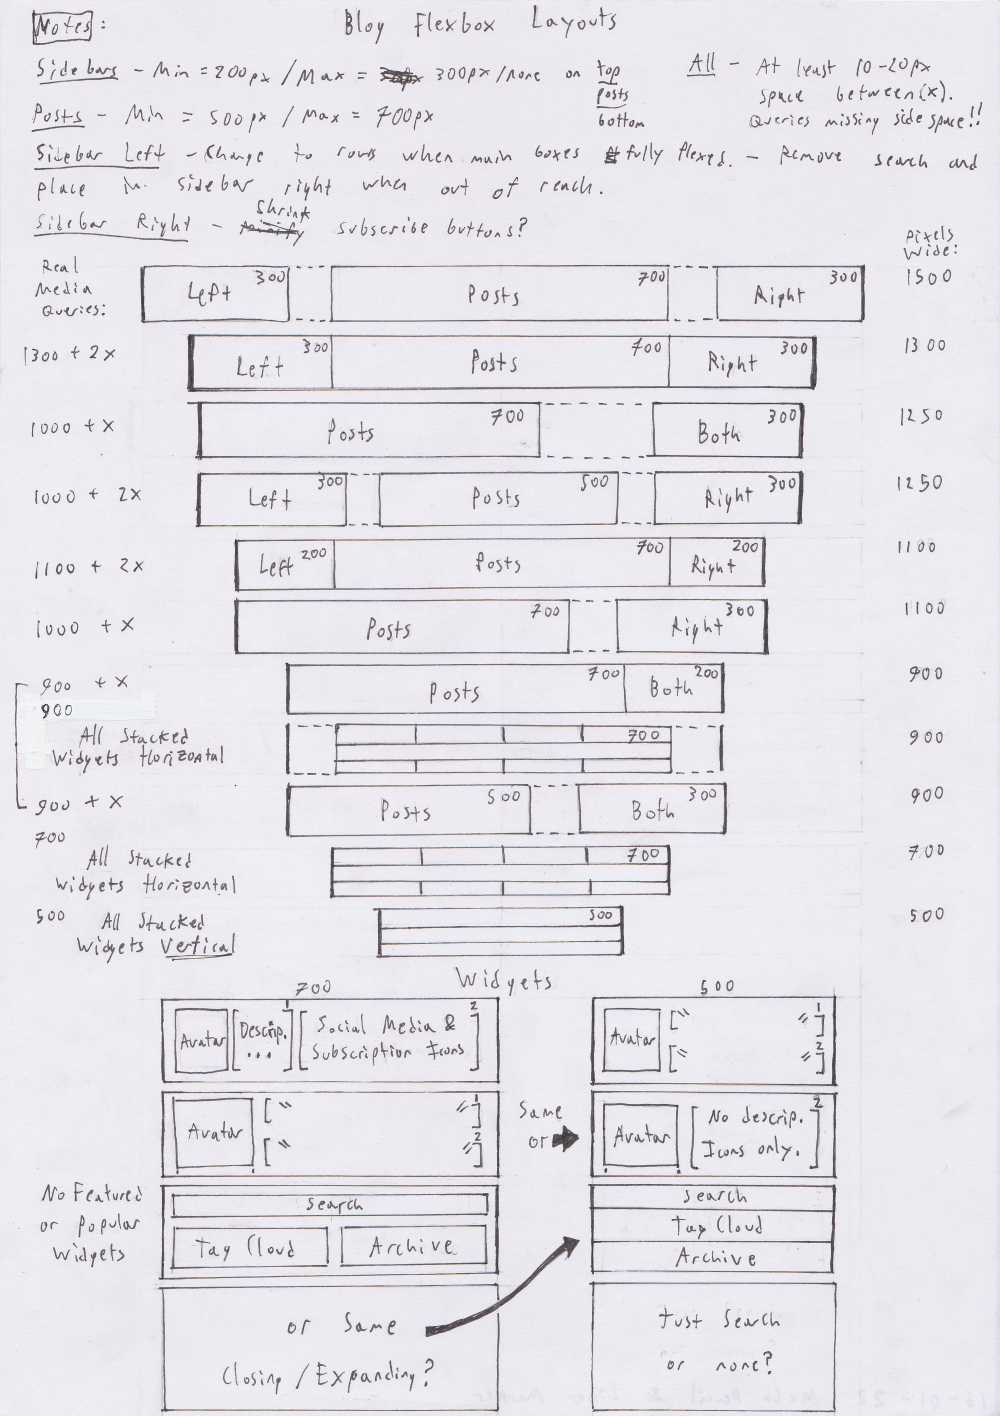 Notes: Blog Flexbox Layouts
Sidebars - Min = 200px / Max = 300px/none on top
posts
bottom
All - At least 10-20px
space between(x).
Queries missing side space!!
Posts - Min = 500px / Max = 700px
Sidebar Left - Change to rows when main boxes fully flexed. - Remove search and
place in sidebar right when out of reach.
Sidebar Right - Shrink subscribe buttons?
Real
Media
Queries:
Pixels
Wide:
Left 300 Posts 700 Right 300 1500
1300 + 2x Left 300 Posts 700 Right 300 1300
1000 + x Posts 700 Both 300 1250
1000 + 2x Left 300 Posts 500 Right 300 1250
1100 + 2x Left 200 Posts 700 Right 200 1100
1000 + x Posts 700 Right 300 1100
900 + x Posts 700 Both 200 900
900
All Stacked
Widgets Horizontal
700 900
900 + x Posts 500 Both 300 900
700
All Stacked
Widgets Horizontal
700 700
500 All Stacked
Widgets Vertical
500 500
Widgets
700 500
Avatar [Descrip. ...]1 [Social Media &
Subscription Icons]2
Avatar [" "]1
[" "]2
Avatar [" "]1
[" "]2
Same
or
Avatar [No descrip.
Icons only.]2
No Featured
or Popular
Widgets
Search
Tag Cloud Archive
Search
Tag Cloud
Archive
or Same
Closing / Expanding?
Just Search
or none?